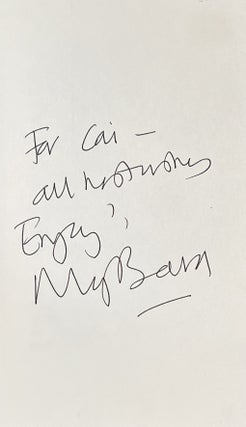 For Cai –
all best wishes
Enjoy!,